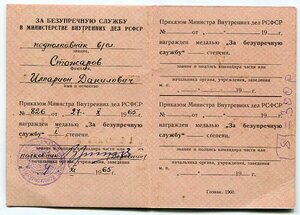 ЗА БЕЗУПРЕЧНУЮ СЛУЖБУ
В МИНИСТЕРСТВЕ ВНУТРЕННИХ ДЕЛ РСФСР
подполковник в/сл.
звание,
Столяров
фамилия,
Илларион Данилович
имя и отчество
Приказом Министра Внутренних дел РСФСР
№ 826 от „27“ X 1965г.
награжден медалью „За безупречную
службу“ I степени.
звание и подпись командира части или
полковник
начальника органа, учреждения, заведения
XI 1965г.
Приказом Министра Внутренних дел РСФСР
№ от „ “ 19 г.
награжден медалью „За безупречную
службу“ степени.
звание и подпись командира части или
М. П.
начальника органа, учреждения, заведения
„ “ 19 г.
Приказом Министра Внутренних дел РСФСР
№ от „ “ 19 г.
награжден медалью „За безупречную
службу“ степени.
звание и подпись командира части или
М. П.
начальника органа, учреждения, заведения
„ “ 19 г.
Гознак. 1960.